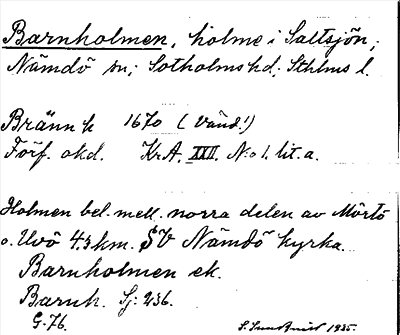 Barnholmen, holme i Saltsjön,
Nämdö sn; Sotholms hd; Sthlms l.
Bränn h 1670 (vänd!)
Förf. okd. KrA. XXII. No 1. lit. a.
Holmen bel. mell. norra delen av Mörtö
o. Uvö 4.3 km. SV Nämdö kyrka.
Barnholmen ek.
Barnh. Sj: 236.
G. 76. 1935.